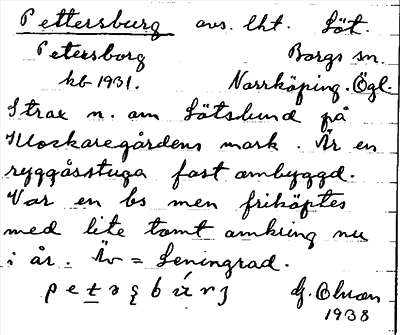 Pettersburg avs. lht. Löt.
Petersborg Borgs sn.
kb 1931. Norrköping. Ögl.
Strax n. om Lötslund på
Klockaregårdens mark. Är en
ryggåsstuga fast ombyggd.
Var en bs men friköptes
med lite tomt omkring nu
i år. Äv = Leningrad.
G. Olson
1938